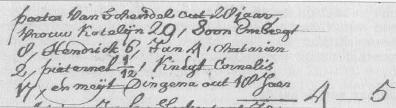 pester Van Schendel out 28 jaar,
Vrouw Katelijn 29, Soon Embregt
8, Hendrick 6, Jan 4, Matarien
2, pieternel 1/12, Knegt Cornelis
17, en meijt Dingena out 18 Jaer
4 - 5